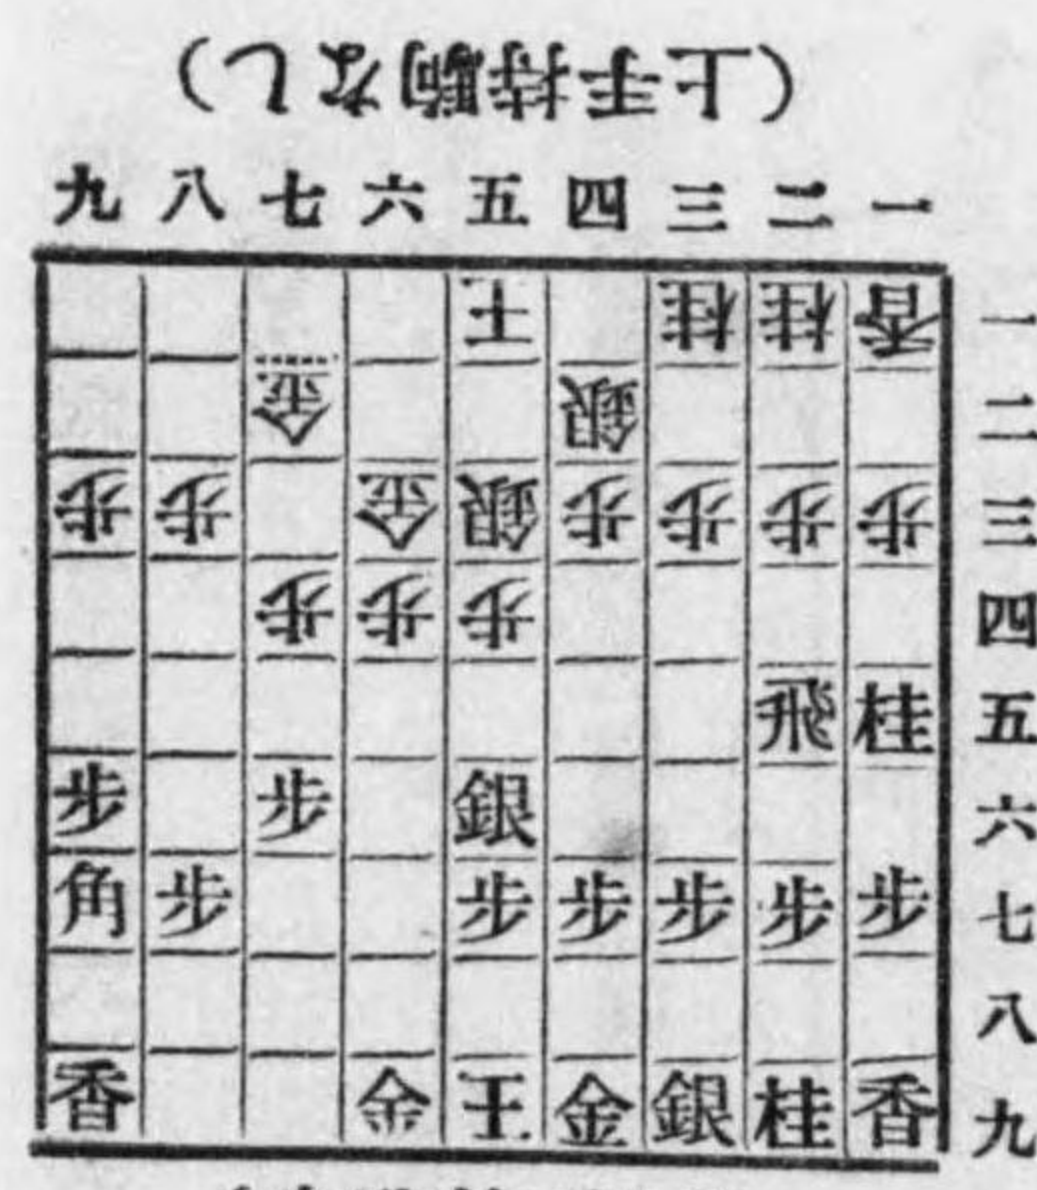 (上手持駒なし)
九 八 七 六 五 四 三 二 一
王 桂 桂 香 一
金 銀 二
歩 歩 金 銀 歩 歩 歩 歩 三
歩 歩 歩 四
飛 桂 五
歩 歩 銀 六
角 歩 歩 歩 歩 歩 歩 七
八
香 金 王 金 銀 桂 香 九